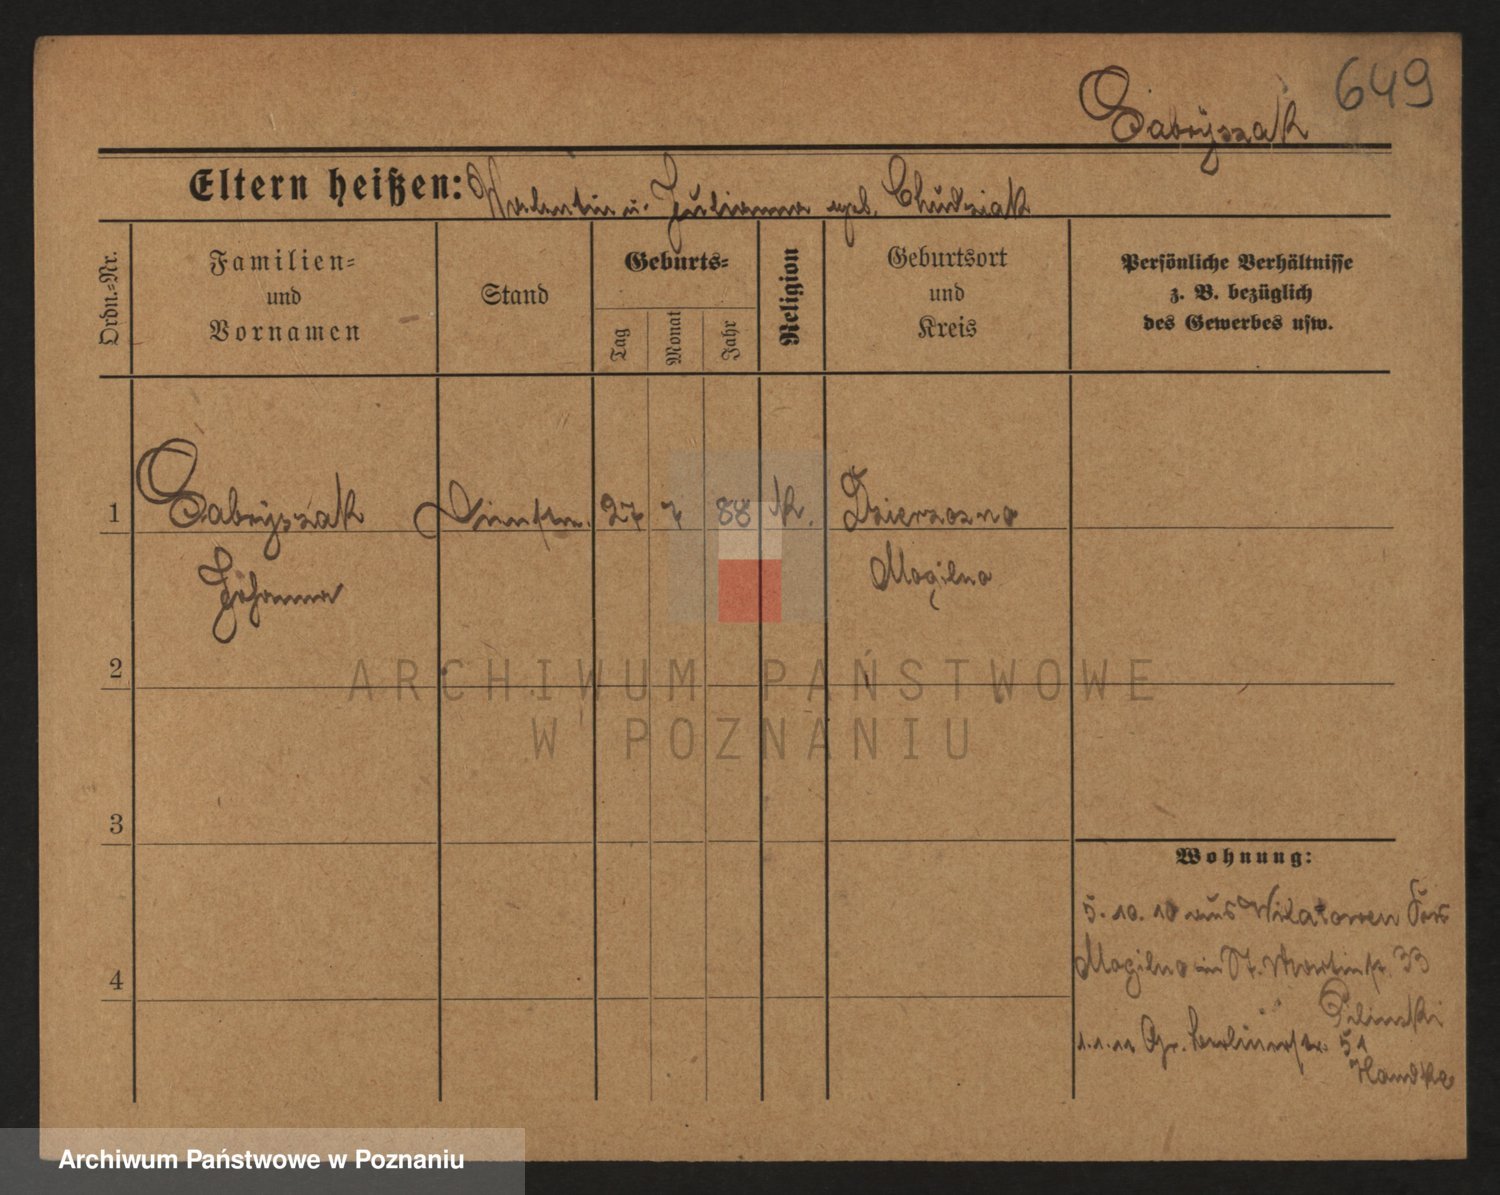 649
Gabryszak
Eltern heißen: Valentin u. Julianna geb. Chudziak
Ordn.-Nr.
Familien-
und
Vornamen
Stand
Geburts-
Tag
Monat
Jahr
Religion
Geburtsort
und
Kreis
Persönliche Verhältnisse
z. B. bezüglich
des Gewerbes usw.
1 Gabryszak Dienstm. 27 7 88 K.
Johanna Mogilno
2
3
4
Wohnung:
5.10.10 aus
Mogilno in St. Martinstr. 33
1.1.11 Gr. Berlinerstr. 51
Handke
ARCHIWUM PAŃSTWOWE
W POZNANIU
Archiwum Państwowe w Poznaniu